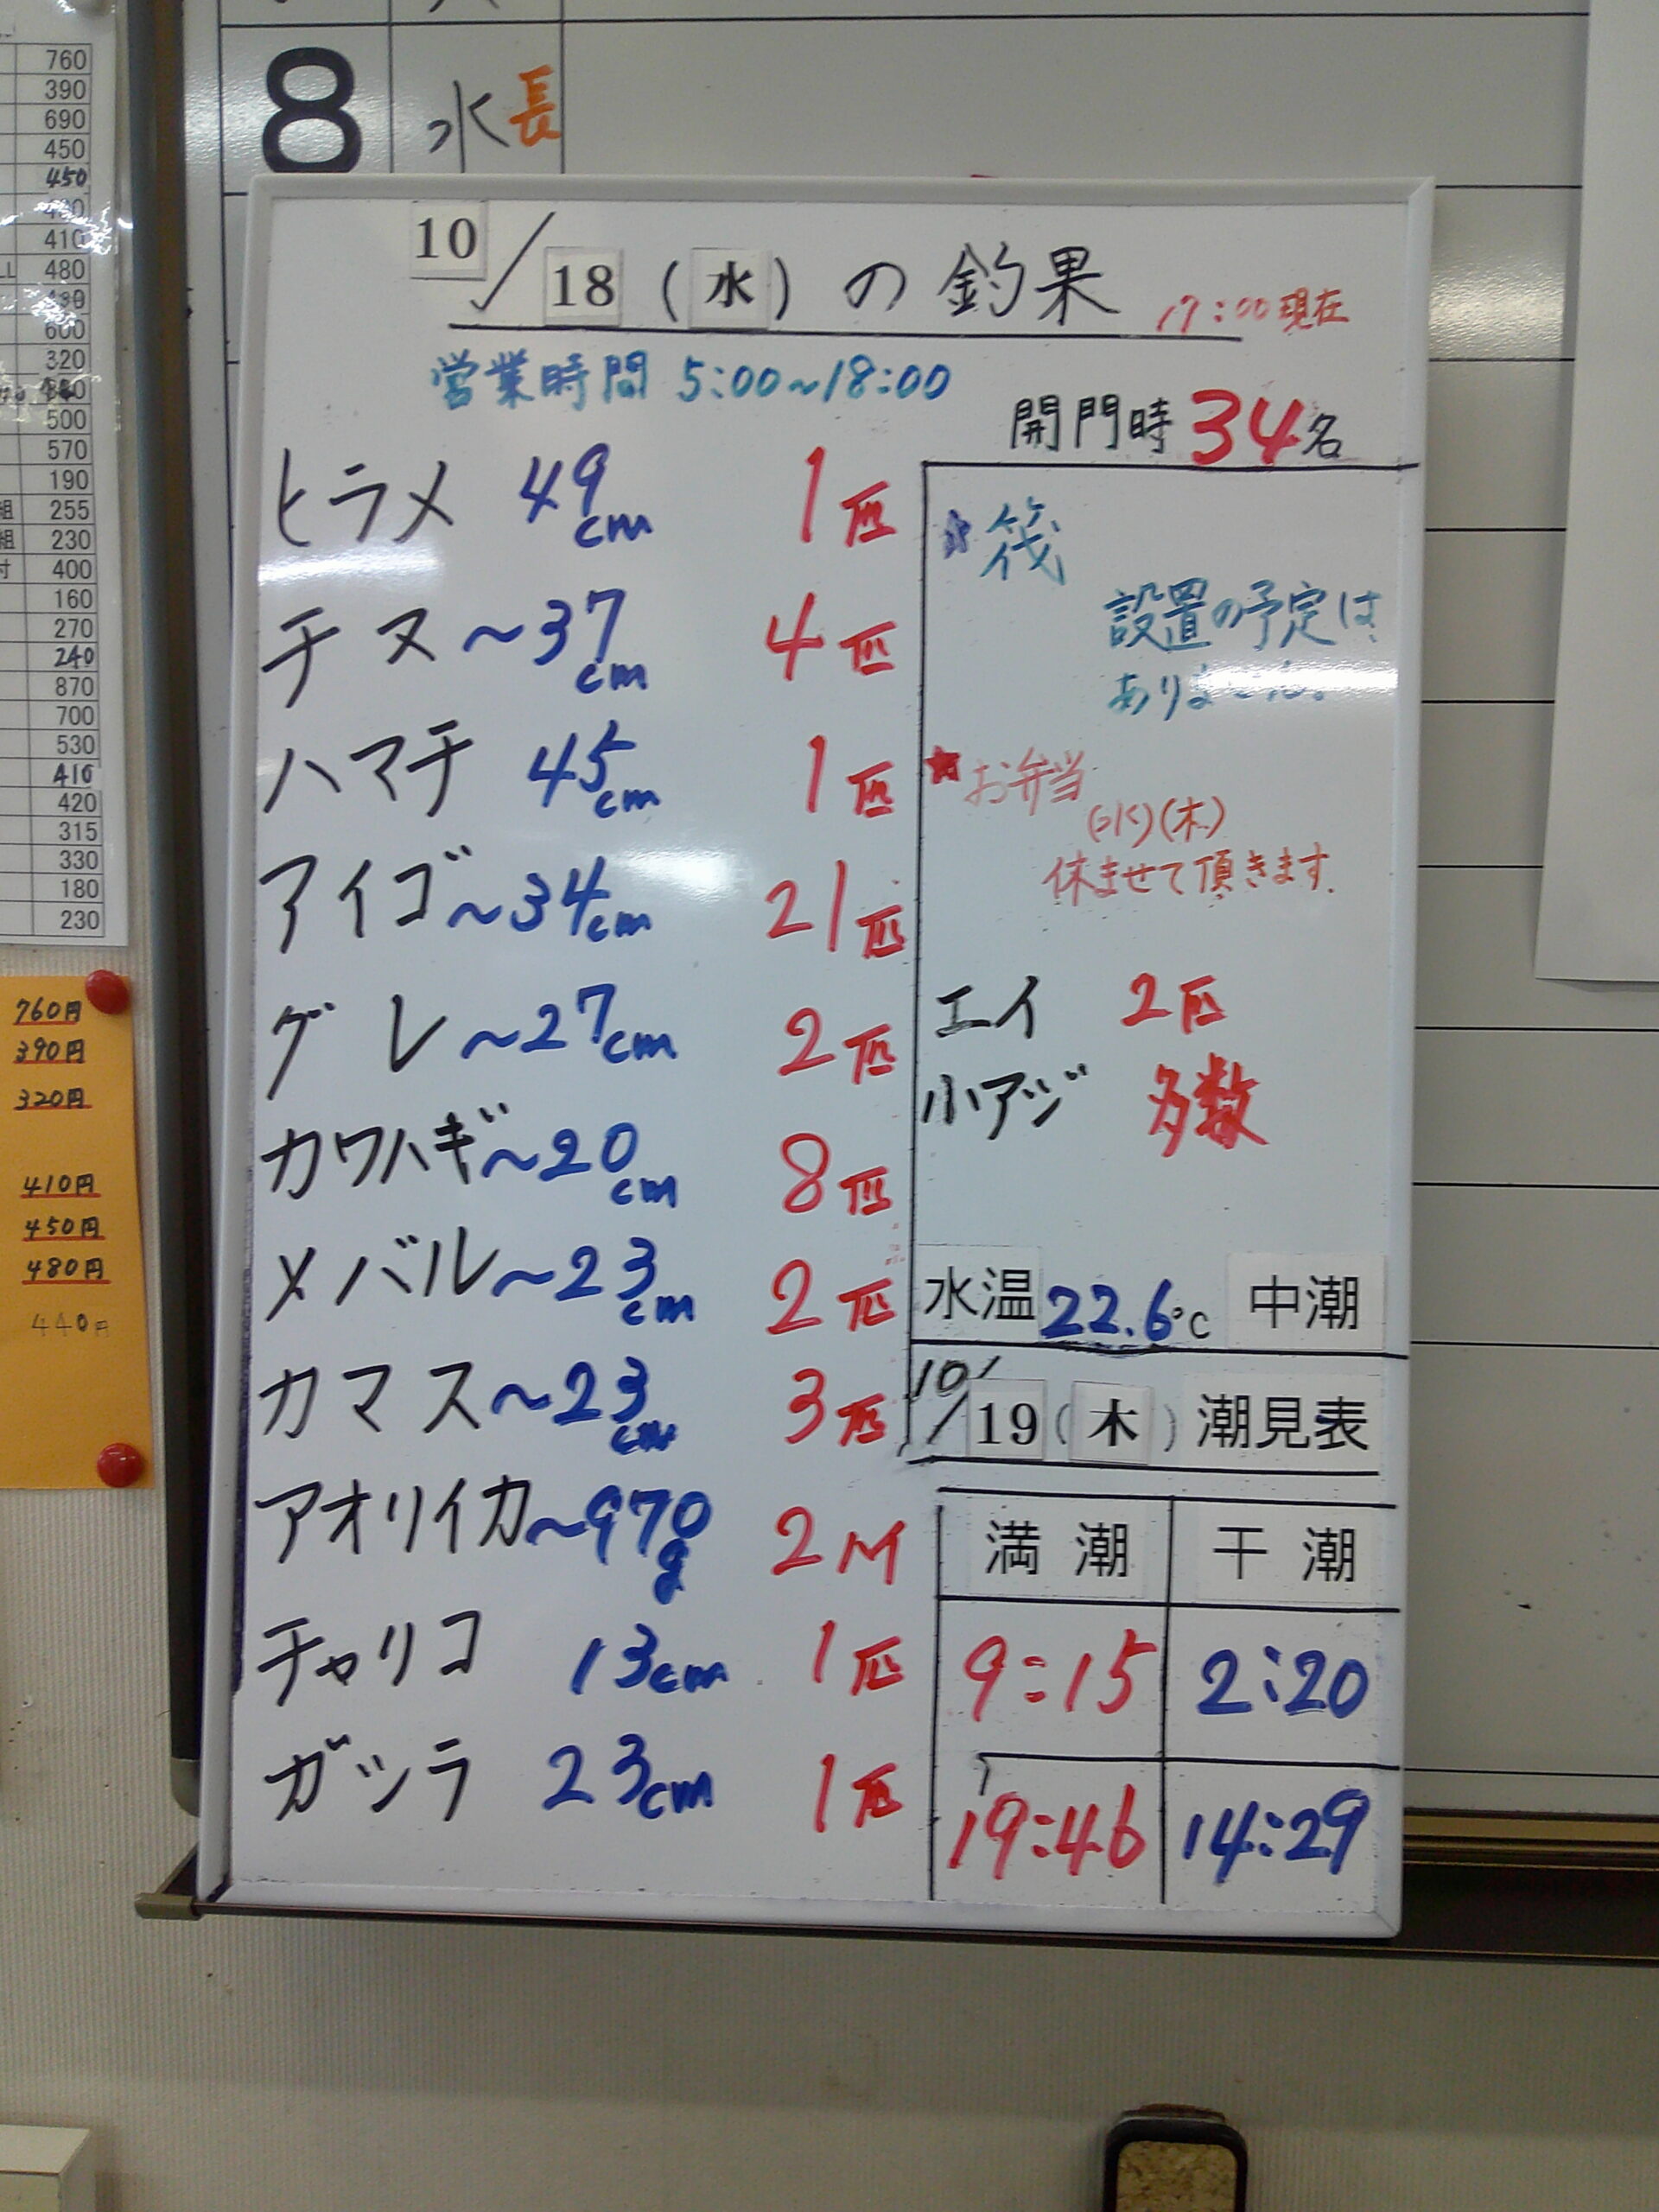 8 水 長
10/18(水)の釣果 17:00現在
営業時間 5:00~18:00
開門時 34名
ヒラメ 49cm 1匹
チヌ ~37cm 4匹
ハマチ 45cm 1匹
アイゴ ~34cm 21匹
グレ ~27cm 2匹
カワハギ ~20cm 8匹
メバル ~23cm 2匹
カマス ~23cm 3匹
アオリイカ ~970g 2ハイ
チャリコ 13cm 1匹
ガシラ 23cm 1匹
★筏
設置の予定は
ありません。
★お弁当
(水)(木)
休ませて頂きます.
エイ 2匹
小アジ 多数
水温 22.6℃ 中潮
10/19(木)潮見表
満潮 干潮
9:15 2:20
19:46 14:29
760
390
690
450
450
410
480
600
320
500
570
190
組 255
組 230
付 400
160
270
240
870
700
530
410
420
315
330
180
230
760円
390円
320円
410円
450円
480円
440円